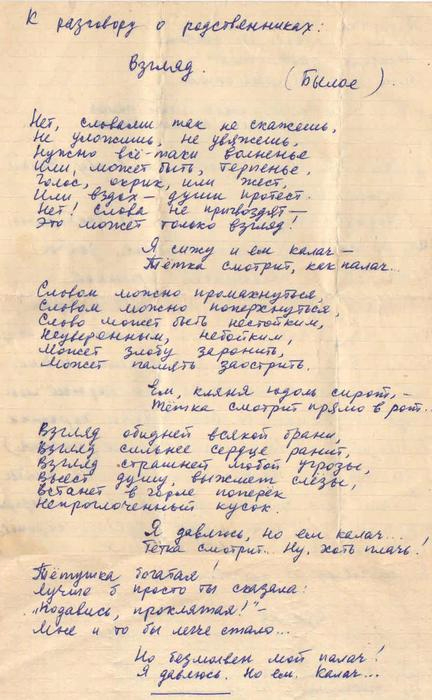 К разговору о родственниках:
Взгляд.
(Былое)
Нет, словами так не скажешь,
Не уложишь, не увяжешь,
Нужно всё-таки волненье
Или, может быть, терпенье,
Голос, окрик, или жест,
Или вздох – души протест.
Нет! Слова не пригвоздят –
Это может только взгляд!
Я сижу и ем калач –
Тётка смотрит, как палач...
Словом можно промахнуться,
Словом можно поперхнуться,
Слово может быть нестойким,
Неуверенным, небойким,
Может злобу заронить,
Может память заострить.
Ем, кляня юдоль сирот, –
Тётка смотрит прямо в рот...
Взгляд обидней всякой брани,
Взгляд сильнее сердце ранит,
Взгляд страшней любой угрозы,
Въест душу, выжмет слёзы,
Встанет в горле поперёк
Непроглоченный кусок.
Я давлюсь, но ем калач...
Тётка смотрит... Ну, хоть плачь!
Тётушка богатая!
Лучше б просто ты сказала:
"Подавись, проклятая!" –
Мне и то бы легче стало...
Но безмолвен мой палач!
Я давлюсь. Но ем. Калач...